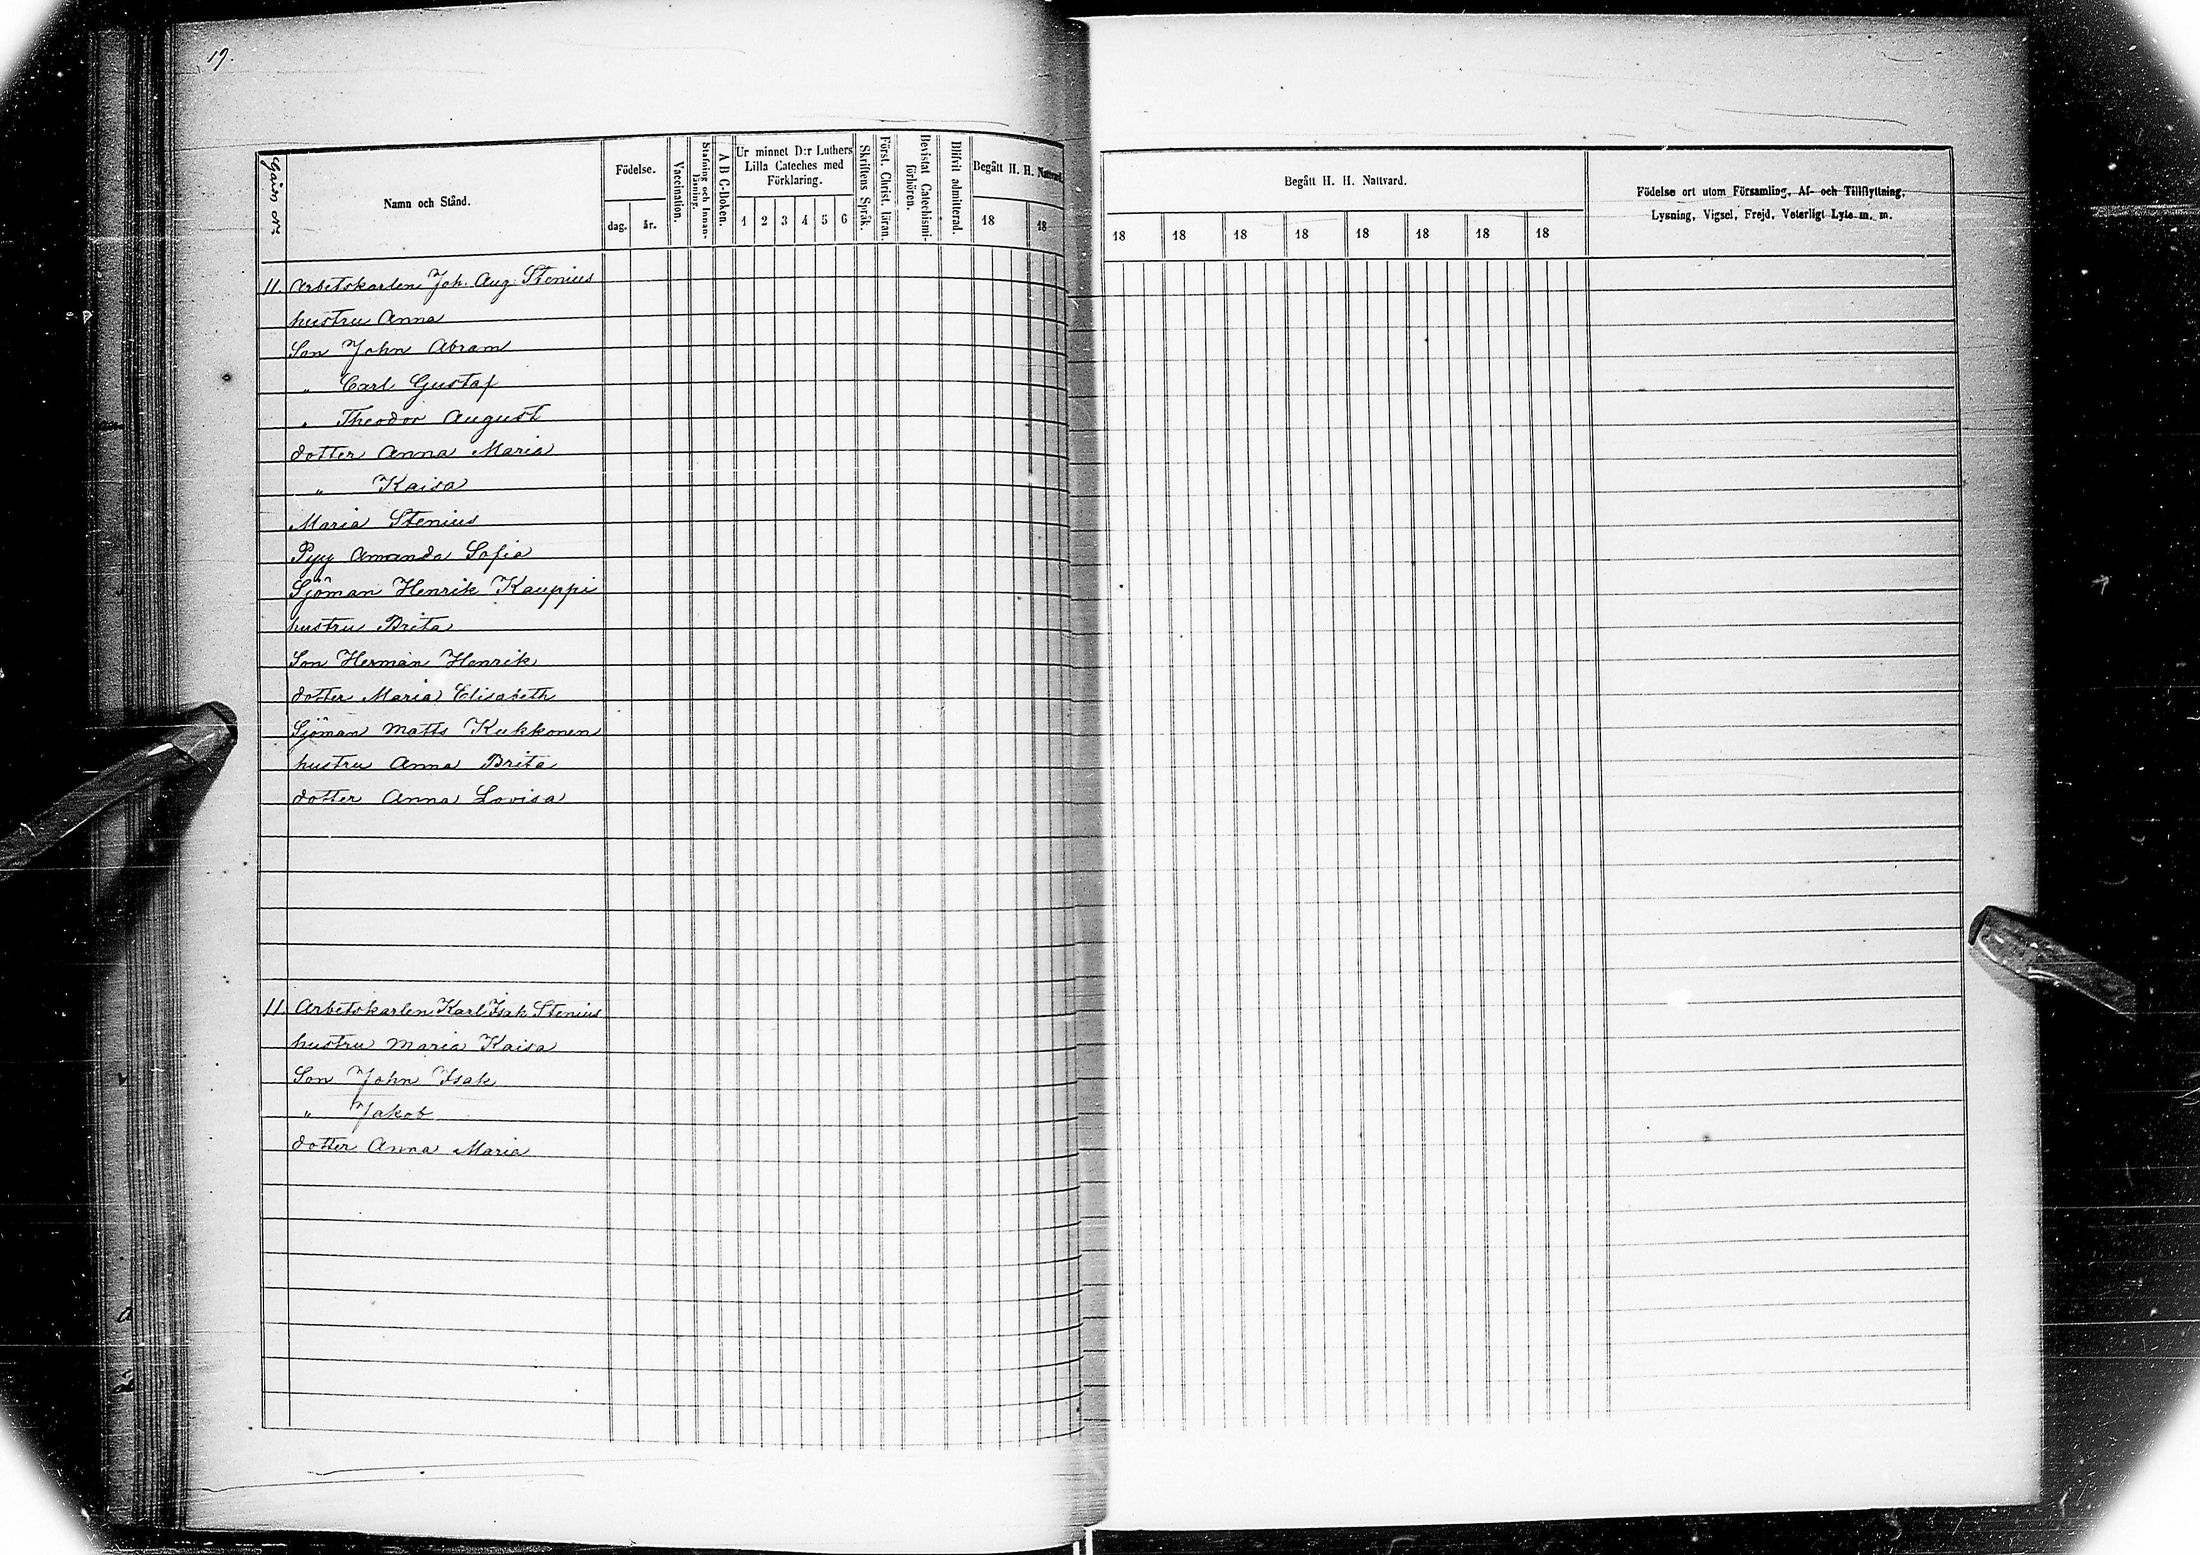 19.
Gårds No.
Namn och Stånd.
Födelse.
dag. år.
Vaccination.
Stafning och Innan-
läsning.
A B C-Boken.
Ur minnet D:r Luthers
Lilla Cateches med
Förklaring.
1 2 3 4 5 6
Skriftens Språk.
Först. Christ. läran.
Bevistat Catechismi-
förhören.
Blifvit admitterad.
Begått H. H. Nattvard.
18 18
Begått H. H. Nattvard.
18 18 18 18 18 18 18 18
Födelse ort utom Församling, Af- och Tillflyttning,
Lysning, Vigsel, Frejd, Veterligt Lyte m. m.
11. Arbetskarlen Joh. Aug. Stenius
hustru Anna
Son John Abram
" Carl Gustaf
" Theodor August
dotter Anna Maria
" Kaisa
Maria Stenius
Pyy Amanda Sofia
Sjöman Henrik Kauppi
hustru Brita
Son Herman Henrik
dotter Maria Elisabeth
Sjöman Matts Kukkonen
hustru Anna Brita
dotter Anna Lovisa
11. Arbetskarlen Karl Isak Stenius
hustru Maria Kaisa
Son John Isak
" Jakob
dotter Anna Maria